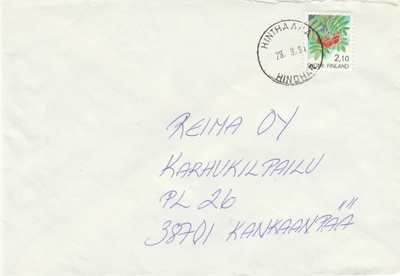 HINTHAARA
23. 8.91
HINDHAR
2,10
SUOMI FINLAND
REIMA OY
KARHUKILPAILU
PL 26
38701 KANKAANPÄÄ